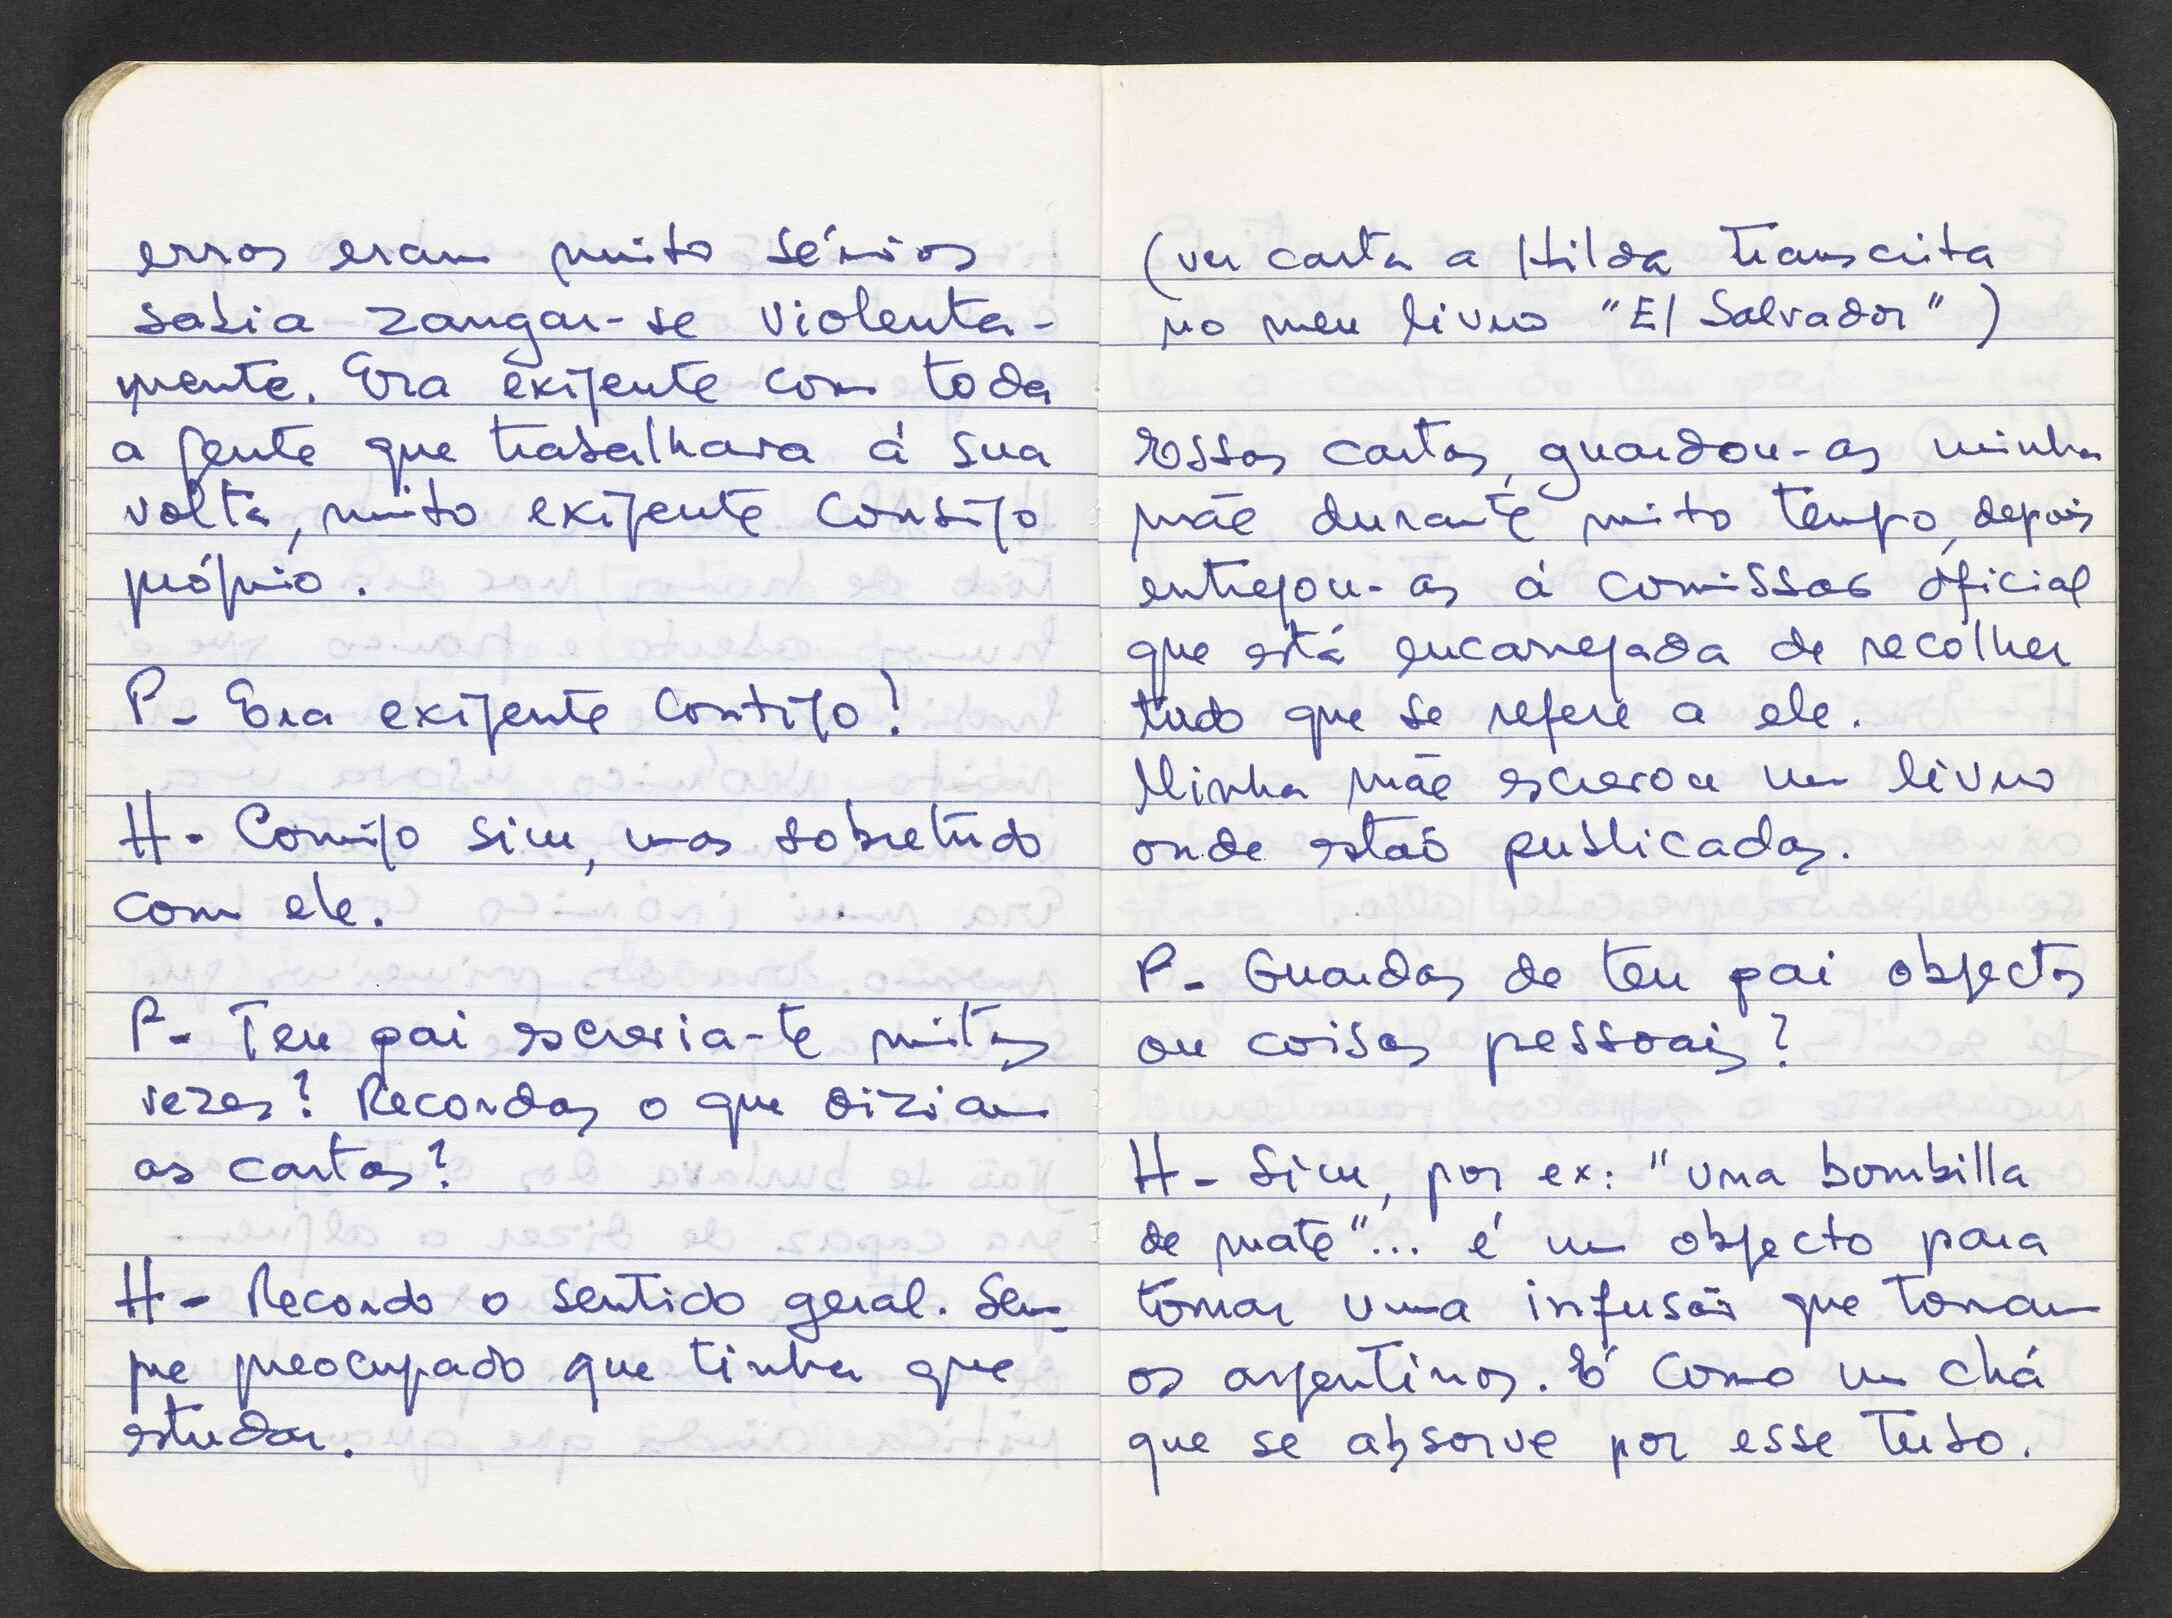 erros eram muito sérios
sabia zangar-se violenta-
mente. Era exijente com toda
a gente que trabalhava á sua
volta, muito exijente consigo
próprio.
P- Era exijente contigo?
H- Comigo sim, mas sobretudo
com ele.
P- Teu pai escrevia-te muitas
vezes? Recordas o que diziam
as cartas?
H- Recordo o sentido geral. Sem-
pre preocupado que tinha que
estudar.
(ver carta a Hilda transcrita
no meu livro "El Salvador")
Essas cartas, guardou-as minha
mãe durante muito tempo, depois
entregou-as á comissão oficial
que está encarregada de recolher
tudo que se refere a ele.
Minha mãe escreveu um livro
onde estão publicadas.
P- Guardas de teu pai objectos
ou coisas pessoais?
H- Sim, por ex: "uma bombilla
de mate"... é um objecto para
tomar uma infusão que tomam
os argentinos. É como um chá
que se absorve por esse tubo.